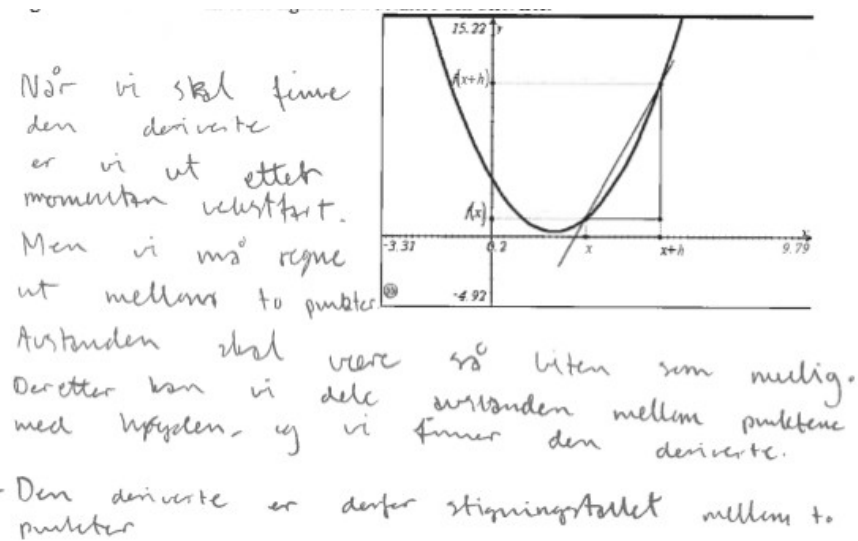 15.22
y
f(x+h)
f(x)
-3.31
0.2
x
x+h
9.79
x
-4.92
Når vi skal finne
den deriverte
er vi ut etter
momentan vekstfart.
Men vi må regne
ut mellom to punkter
Avstanden skal være så liten som mulig.
Deretter kan vi dele avstanden mellom punktene
med høyden, og vi finner den deriverte.
- Den deriverte er derfor stigningstallet mellom to
punkter